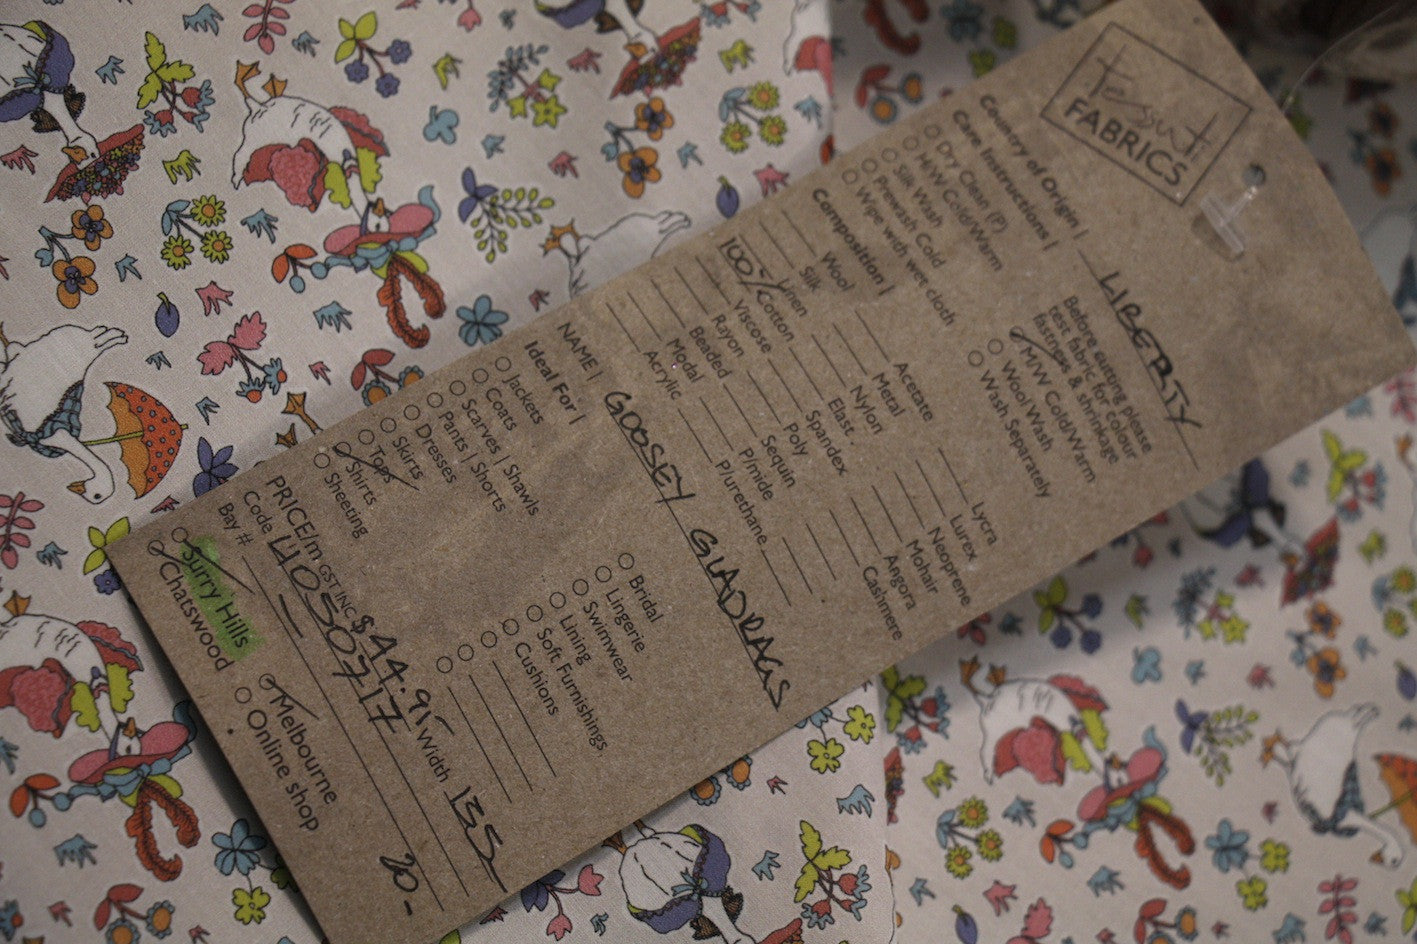 Tessuti
FABRICS
Country of Origin | LIBERTY
Care Instructions |
Dry Clean (P)
H/W Cold/Warm
Silk Wash
Prewash Cold
Wipe with wet cloth
Before cutting please
test fabric for colour
fastness & shrinkage
M/W Cold/Warm
Wool Wash
Wash Separately
Composition |
Wool
Silk
Linen
100% Cotton
Viscose
Rayon
Beaded
Modal
Acrylic
Acetate
Metal
Nylon
Elast.
Spandex
Poly
Sequin
P/mide
P/urethane
Lycra
Lurex
Neoprene
Mohair
Angora
Cashmere
NAME | GOOSEY GLADRAGS
Ideal For |
Jackets
Coats
Scarves | Shawls
Pants | Shorts
Dresses
Skirts
Tops
Shirts
Sheeting
Bridal
Lingerie
Swimwear
Lining
Soft Furnishings
Cushions
PRICE/m GST INC $44.95 Width 135
Code 4050717
Bay # — 20-
Surry Hills
Chatswood
Melbourne
Online shop